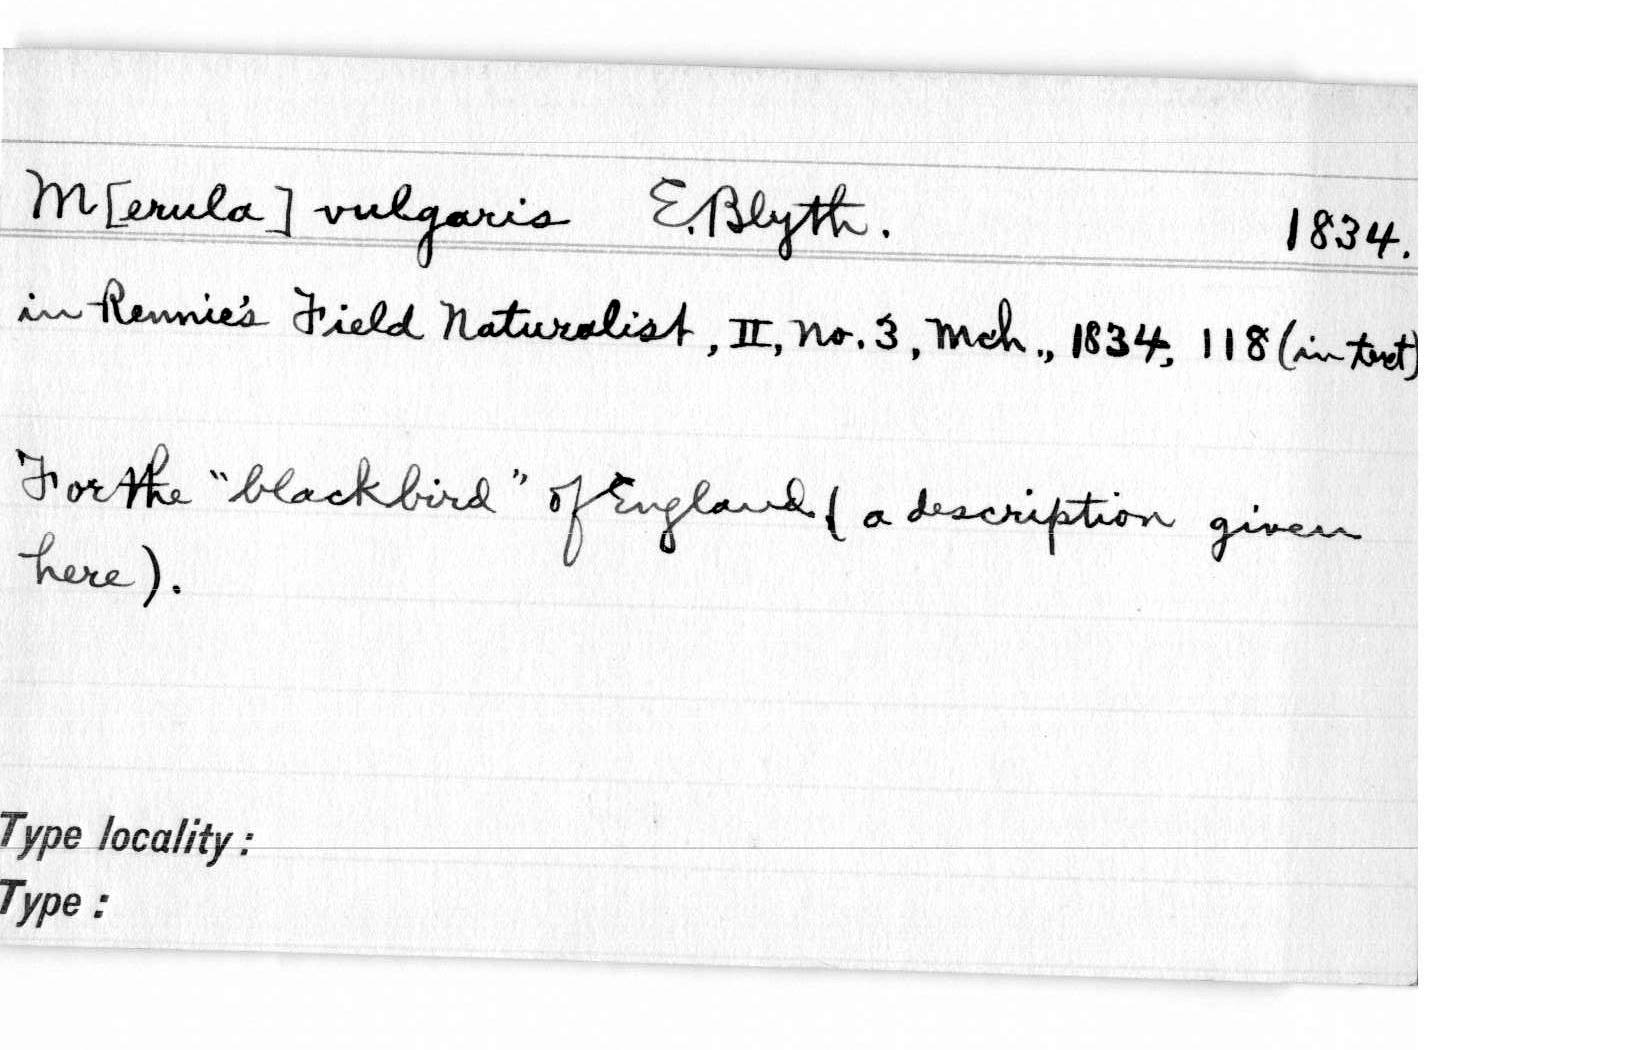 M[erula] vulgaris E. Blyth. 1834.
in Rennie's Field Naturalist, II, No. 3, Mch., 1834, 118 (in text)
For the "blackbird" of England. (a description given
here).
Type locality:
Type: